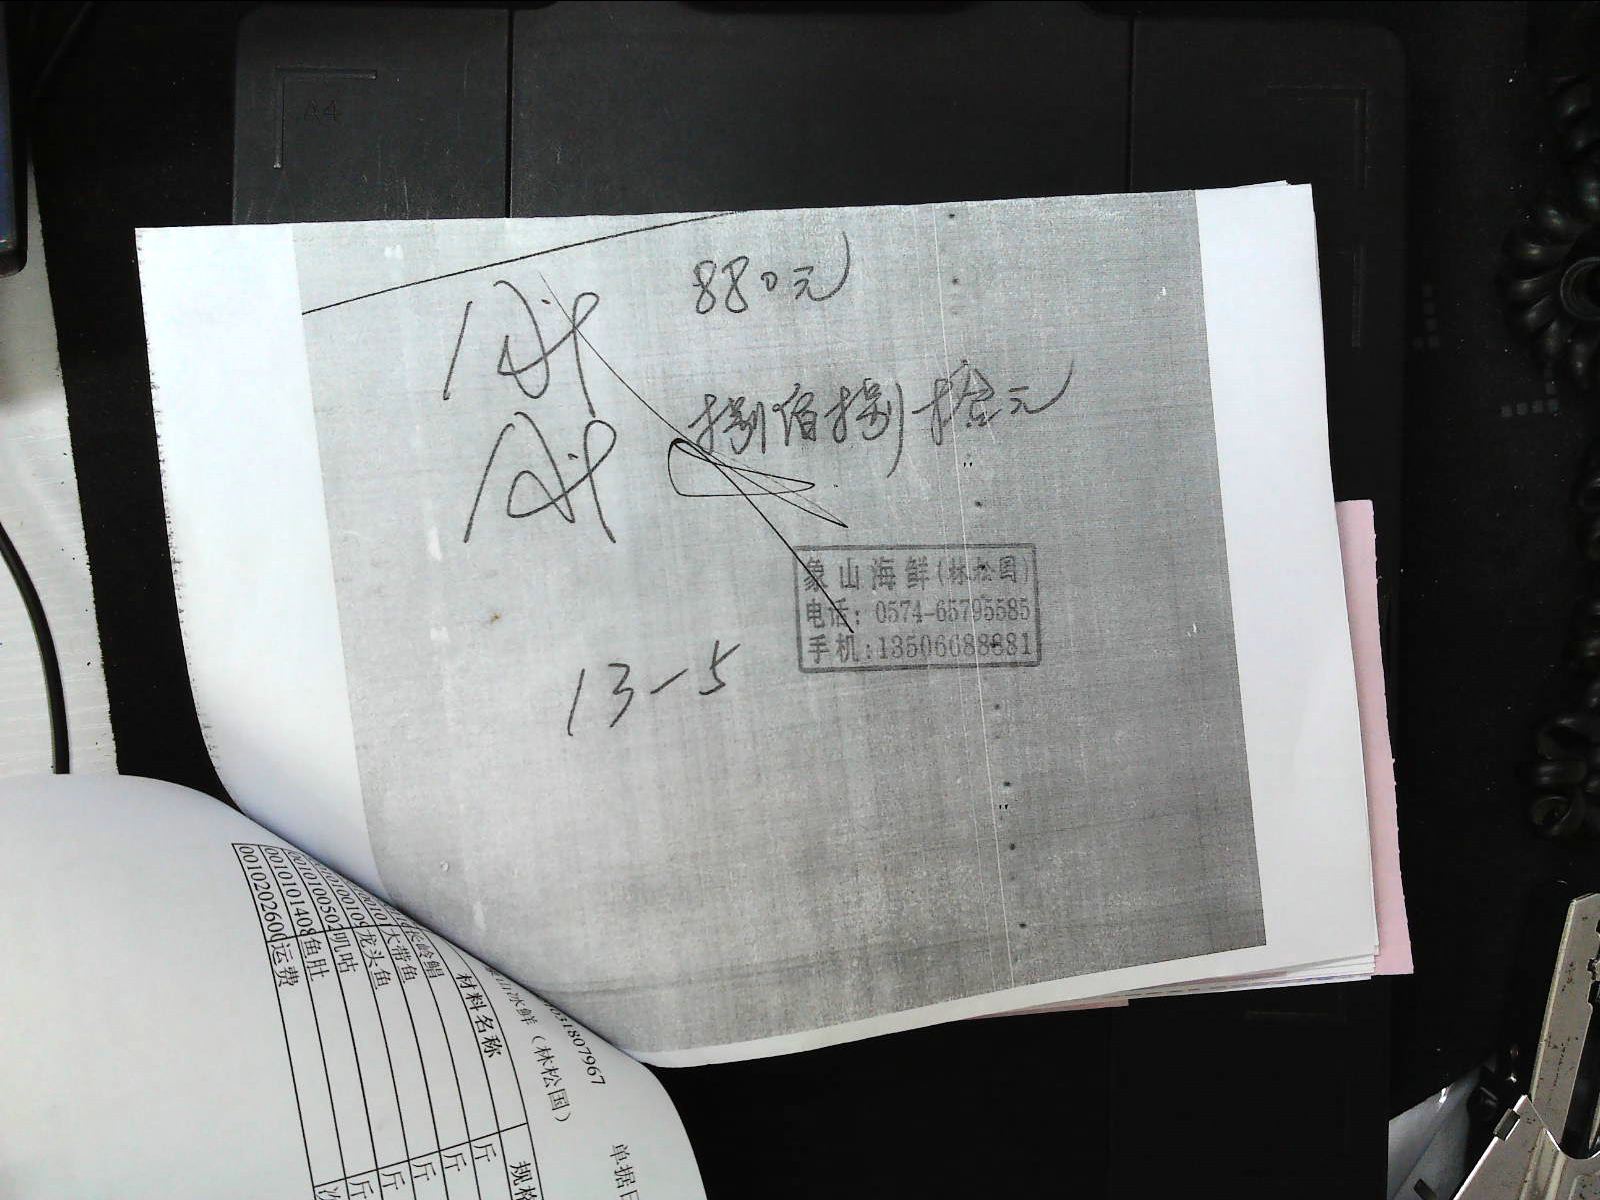 A4
880元
捌佰捌拾元
象山海鲜(林松国)
电话：0574-65795585
手机:13506688881
13-5
031807967
冰鲜（林松国）
单据
材料名称
规格
长岭鲳
斤
大带鱼
斤
龙头鱼
斤
0010100502
叽咕
斤
0010101408
鱼肚
斤
0010202600
运费
次